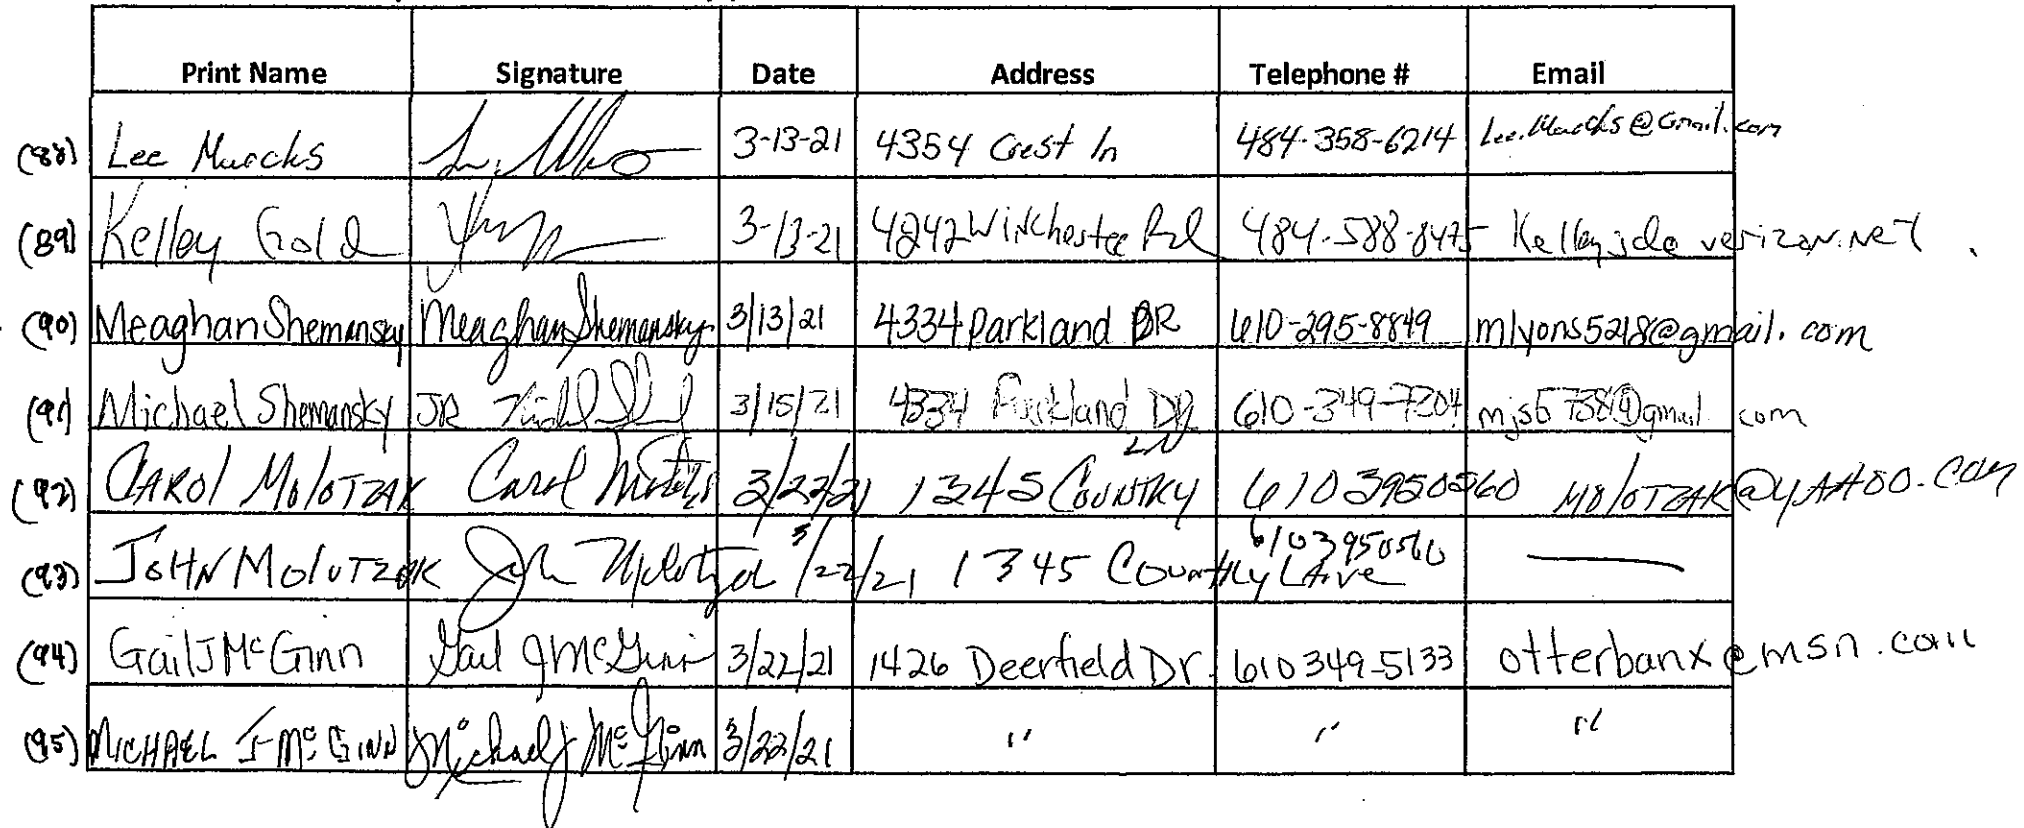 Print Name Signature Date Address Telephone # Email
(88) Lee Muecks 3-13-21 4354 Crest ln 484-358-6214
(89) Kelley Gold 3-13-21 4242 Winchester Rd 484-588-8475 verizon.net
(90) Meaghan Shemansky Meaghan Shemansky 3/13/21 4334 Parkland DR 610-295-8849 mlyons5218@gmail.com
(91) Michael Shemansky JR 3/15/21 4334 Parkland DR 610-349-7204 @gmail com
LN
(92) CAROl MOlOTZAK Carol 3/22/21 1345 COUNTRY 6103950560 MOlOTZAK@YAHOO.COM
(93) JOHN MOlOTZAK John Molotzak 3/22/21 1345 Country Lane 6103950560 —
(94) Gail J McGinn Gail J McGinn 3/22/21 1426 Deerfield Dr. 610 349-5133 otterbanx@msn.com
(95) MICHAEL J McGINN Michael J McGinn 3/22/21 " " "